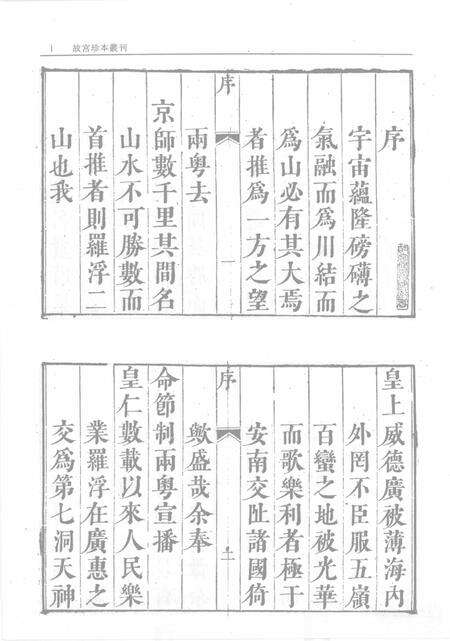 故宮珍本叢刊
序
宇宙蘊隆磅礴之
氣融而為川結而
為山必有其大焉
者推為一方之望
序
一
兩粤去
京師數千里其間名
山水不可勝數而
首推者則羅浮二
山也我
皇上威德廣被薄海內
外罔不臣服五嶺
百蠻之地被光華
而歌樂利者極于
安南交阯諸國猗
序
二
歟盛哉余奉
命節制兩粤宣播
皇仁數載以來人民樂
業羅浮在廣惠之
交為第七洞天神